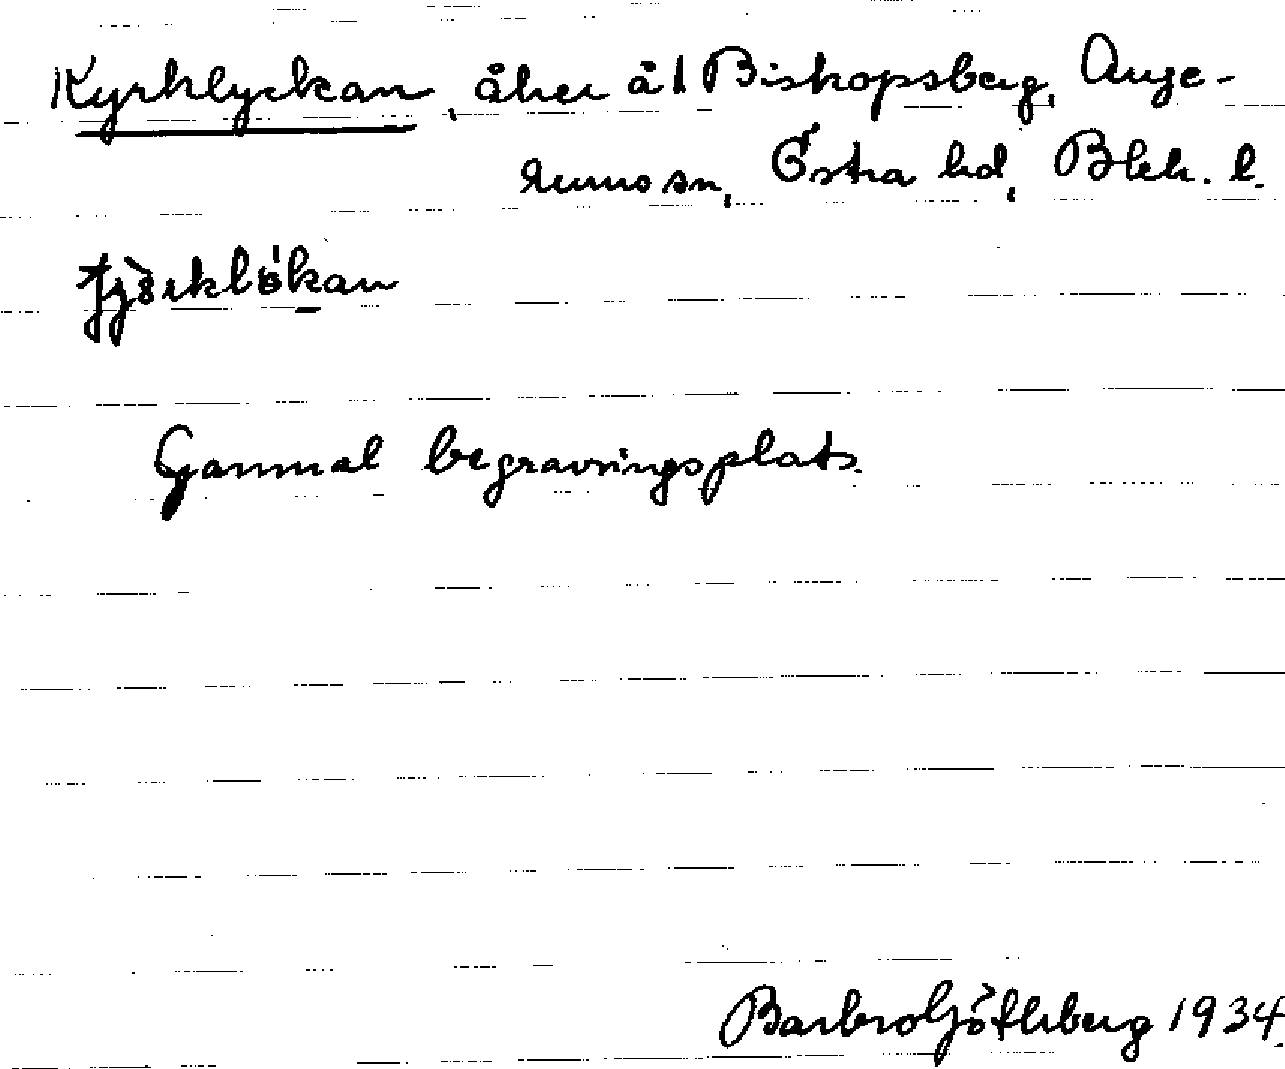 Kyrklyckan, åker å 1 Biskopsberg, Auge-
rums sn, Östra hd, Blek. l.
tjörklökan
Gammal begravningsplats.
Barbro Götleberg 1934.